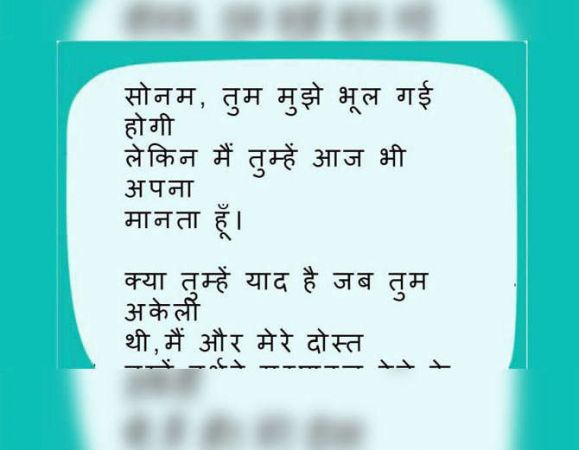 सोनम, तुम मुझे भूल गई
होगी
लेकिन मैं तुम्हें आज भी
अपना
मानता हूँ।
क्या तुम्हें याद है जब तुम
अकेली
थी,मैं और मेरे दोस्त